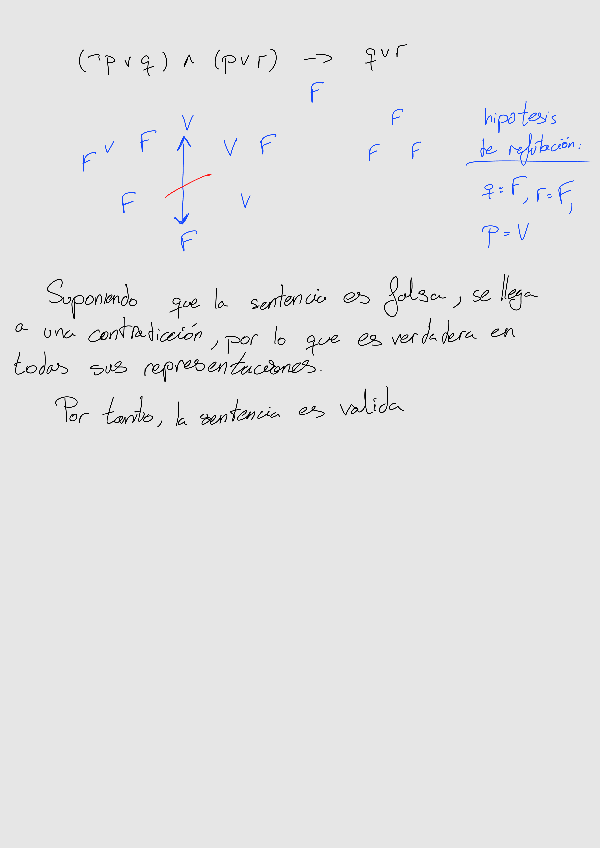 (¬p ∨ q) ∧ (p ∨ r) → q ∨ r
F
V F hipotesis
F V F V F F F de refutación:
F V q = F, r = F,
F p = V
Suponiendo que la sentencia es falsa, se llega
a una contradicción, por lo que es verdadera en
todas sus representaciones.
Por tanto, la sentencia es valida